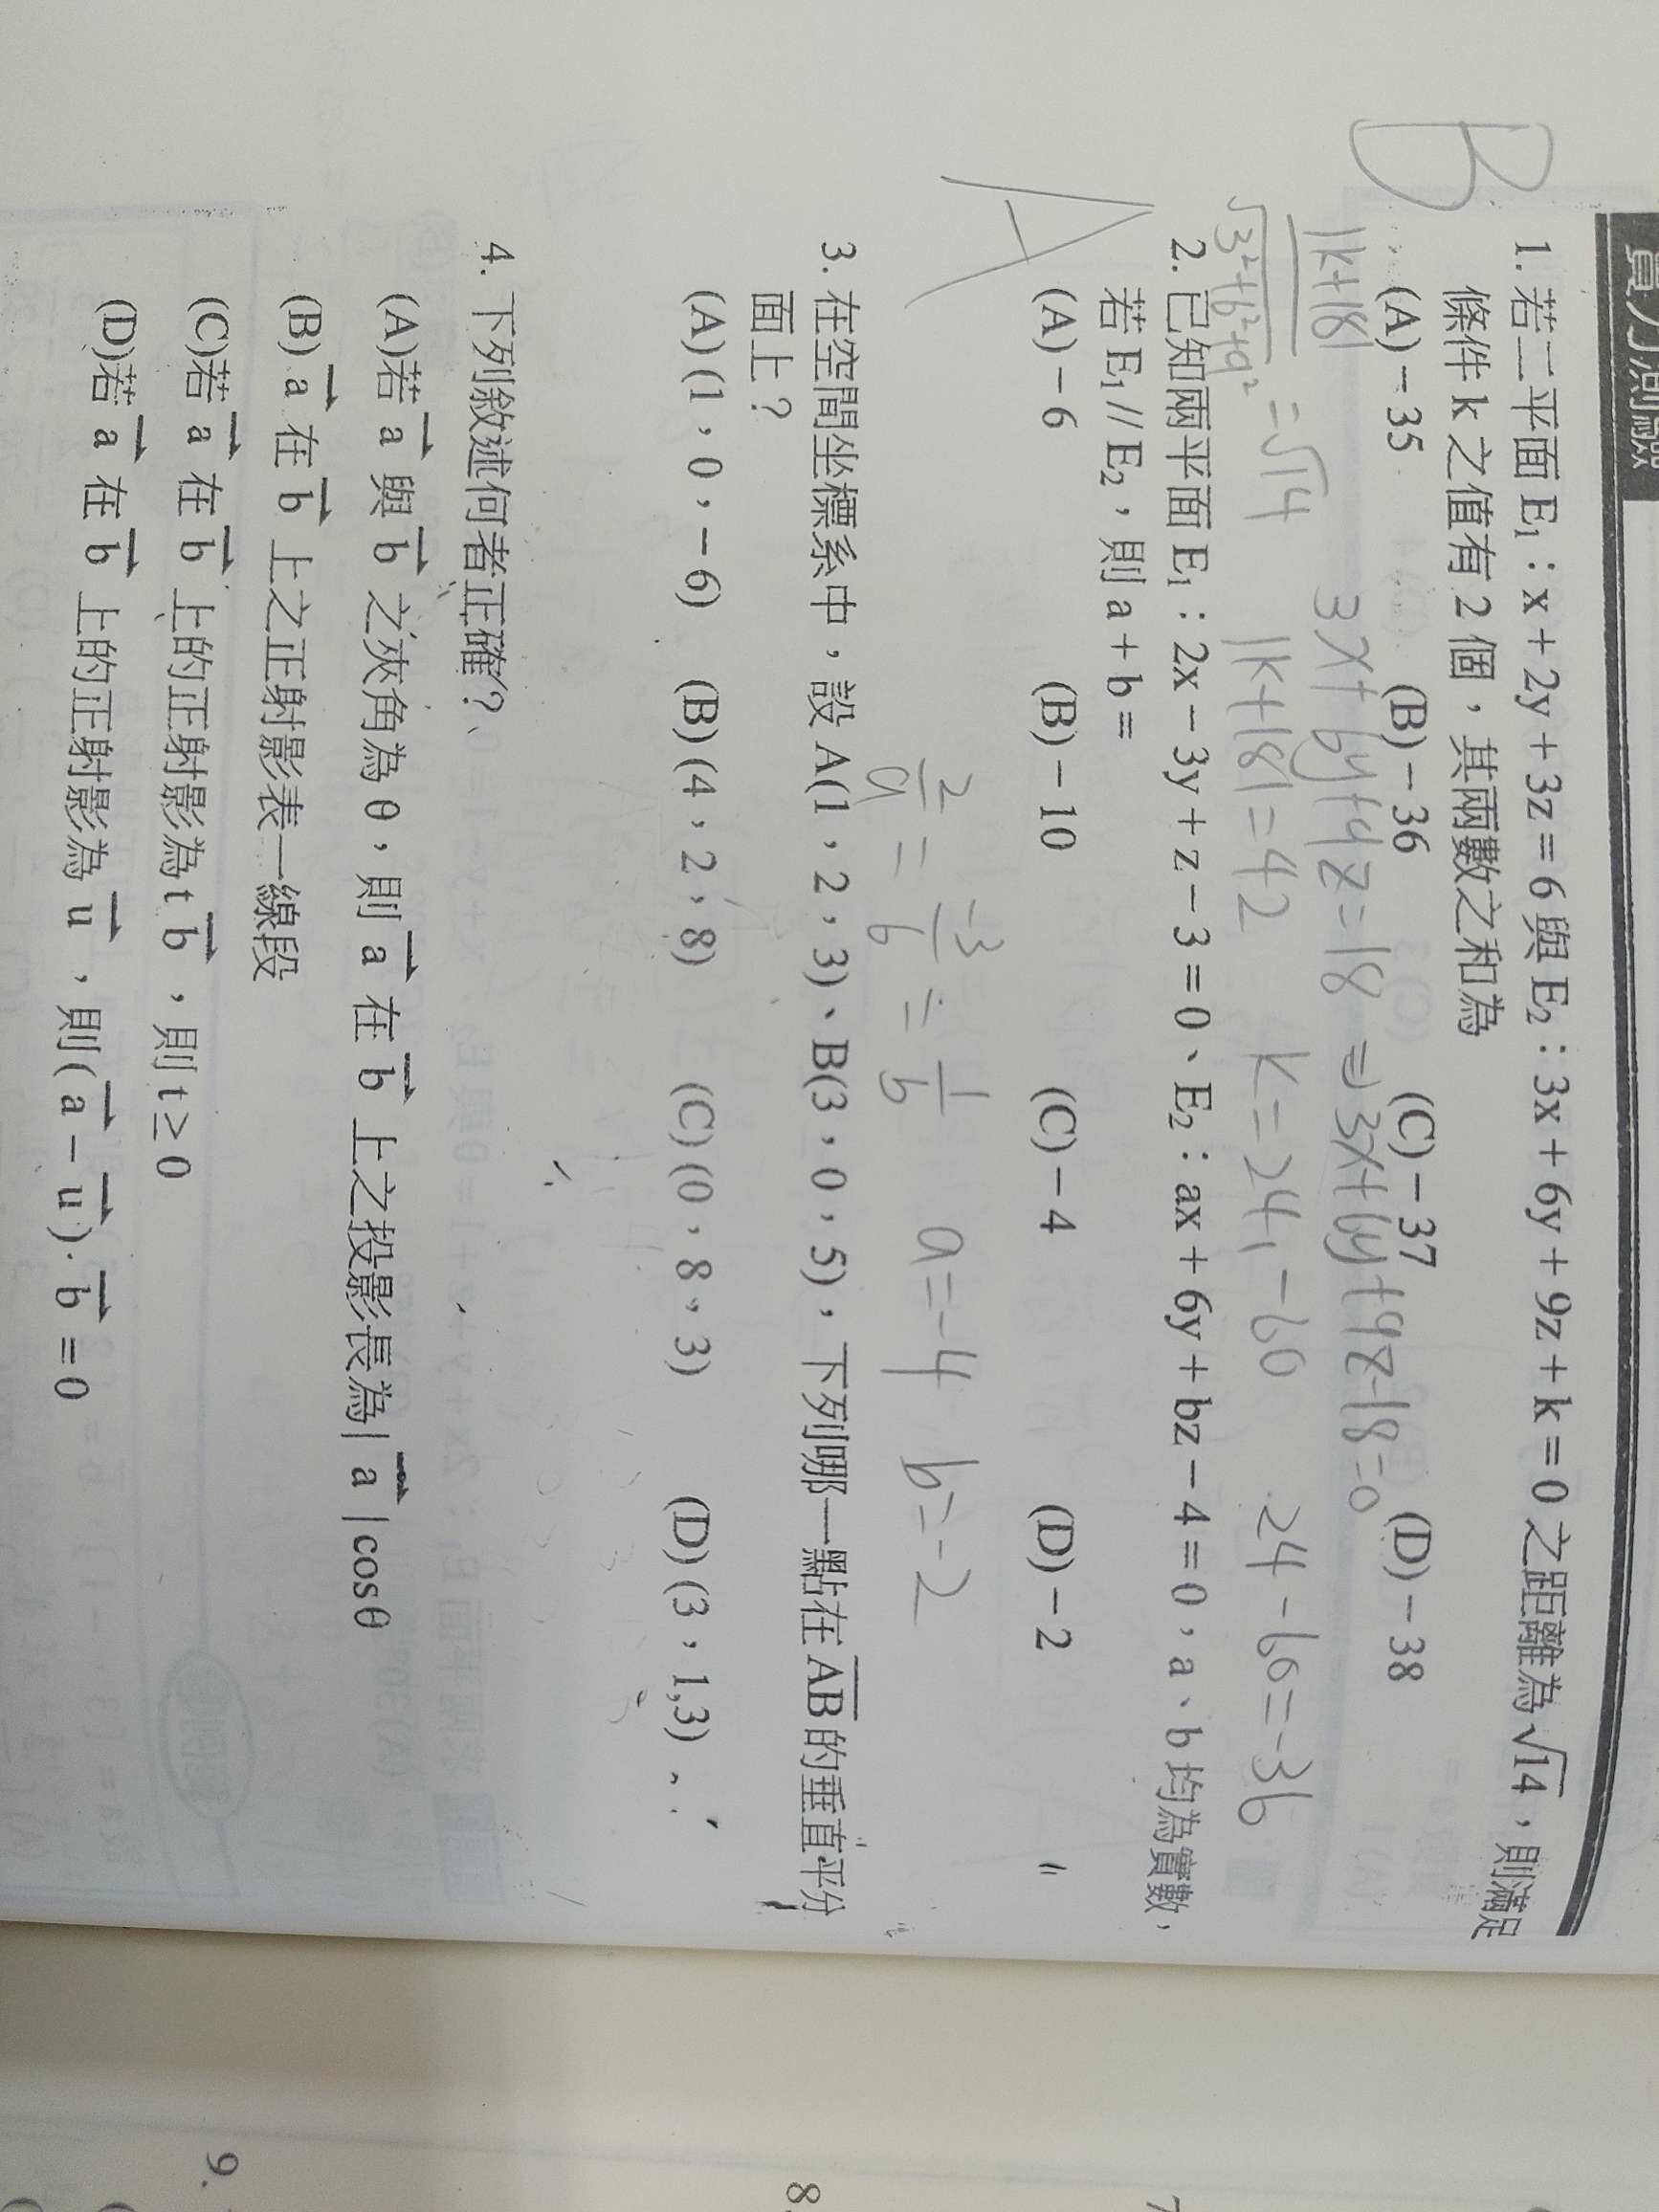 實力測驗
1. 若二平面 E₁：x + 2y + 3z = 6 與 E₂：3x + 6y + 9z + k = 0 之距離為 √14，則滿足
條件 k 之值有 2 個，其兩數之和為
(A) − 35 (B) − 36 (C) − 37 (D) − 38
B
3x+6y+9z=18 ⇒ 3x+6y+9z-18=0
|k+18| / √3²+6²+9² = √14 |k+18|=42 k=24, -60 24-60=-36
2. 已知兩平面 E₁：2x − 3y + z − 3 = 0、E₂：ax + 6y + bz − 4 = 0，a、b 均為實數，
若 E₁ // E₂，則 a + b =
(A) − 6 (B) − 10 (C) − 4 (D) − 2
A
2/a = -3/6 = 1/b a=-4 b=-2
3. 在空間坐標系中，設 A(1，2，3)、B(3，0，5)，下列哪一點在 AB 的垂直平分
面上？
(A) (1，0，− 6) (B) (4，2，8) (C) (0，8，3) (D) (3，1,3)
4. 下列敘述何者正確？
(A)若 a 與 b 之夾角為 θ，則 a 在 b 上之投影長為 | a | cosθ
(B) a 在 b 上之正射影表一線段
(C)若 a 在 b 上的正射影為 t b，則 t ≥ 0
(D)若 a 在 b 上的正射影為 u，則( a − u )· b = 0
7
8.
9.